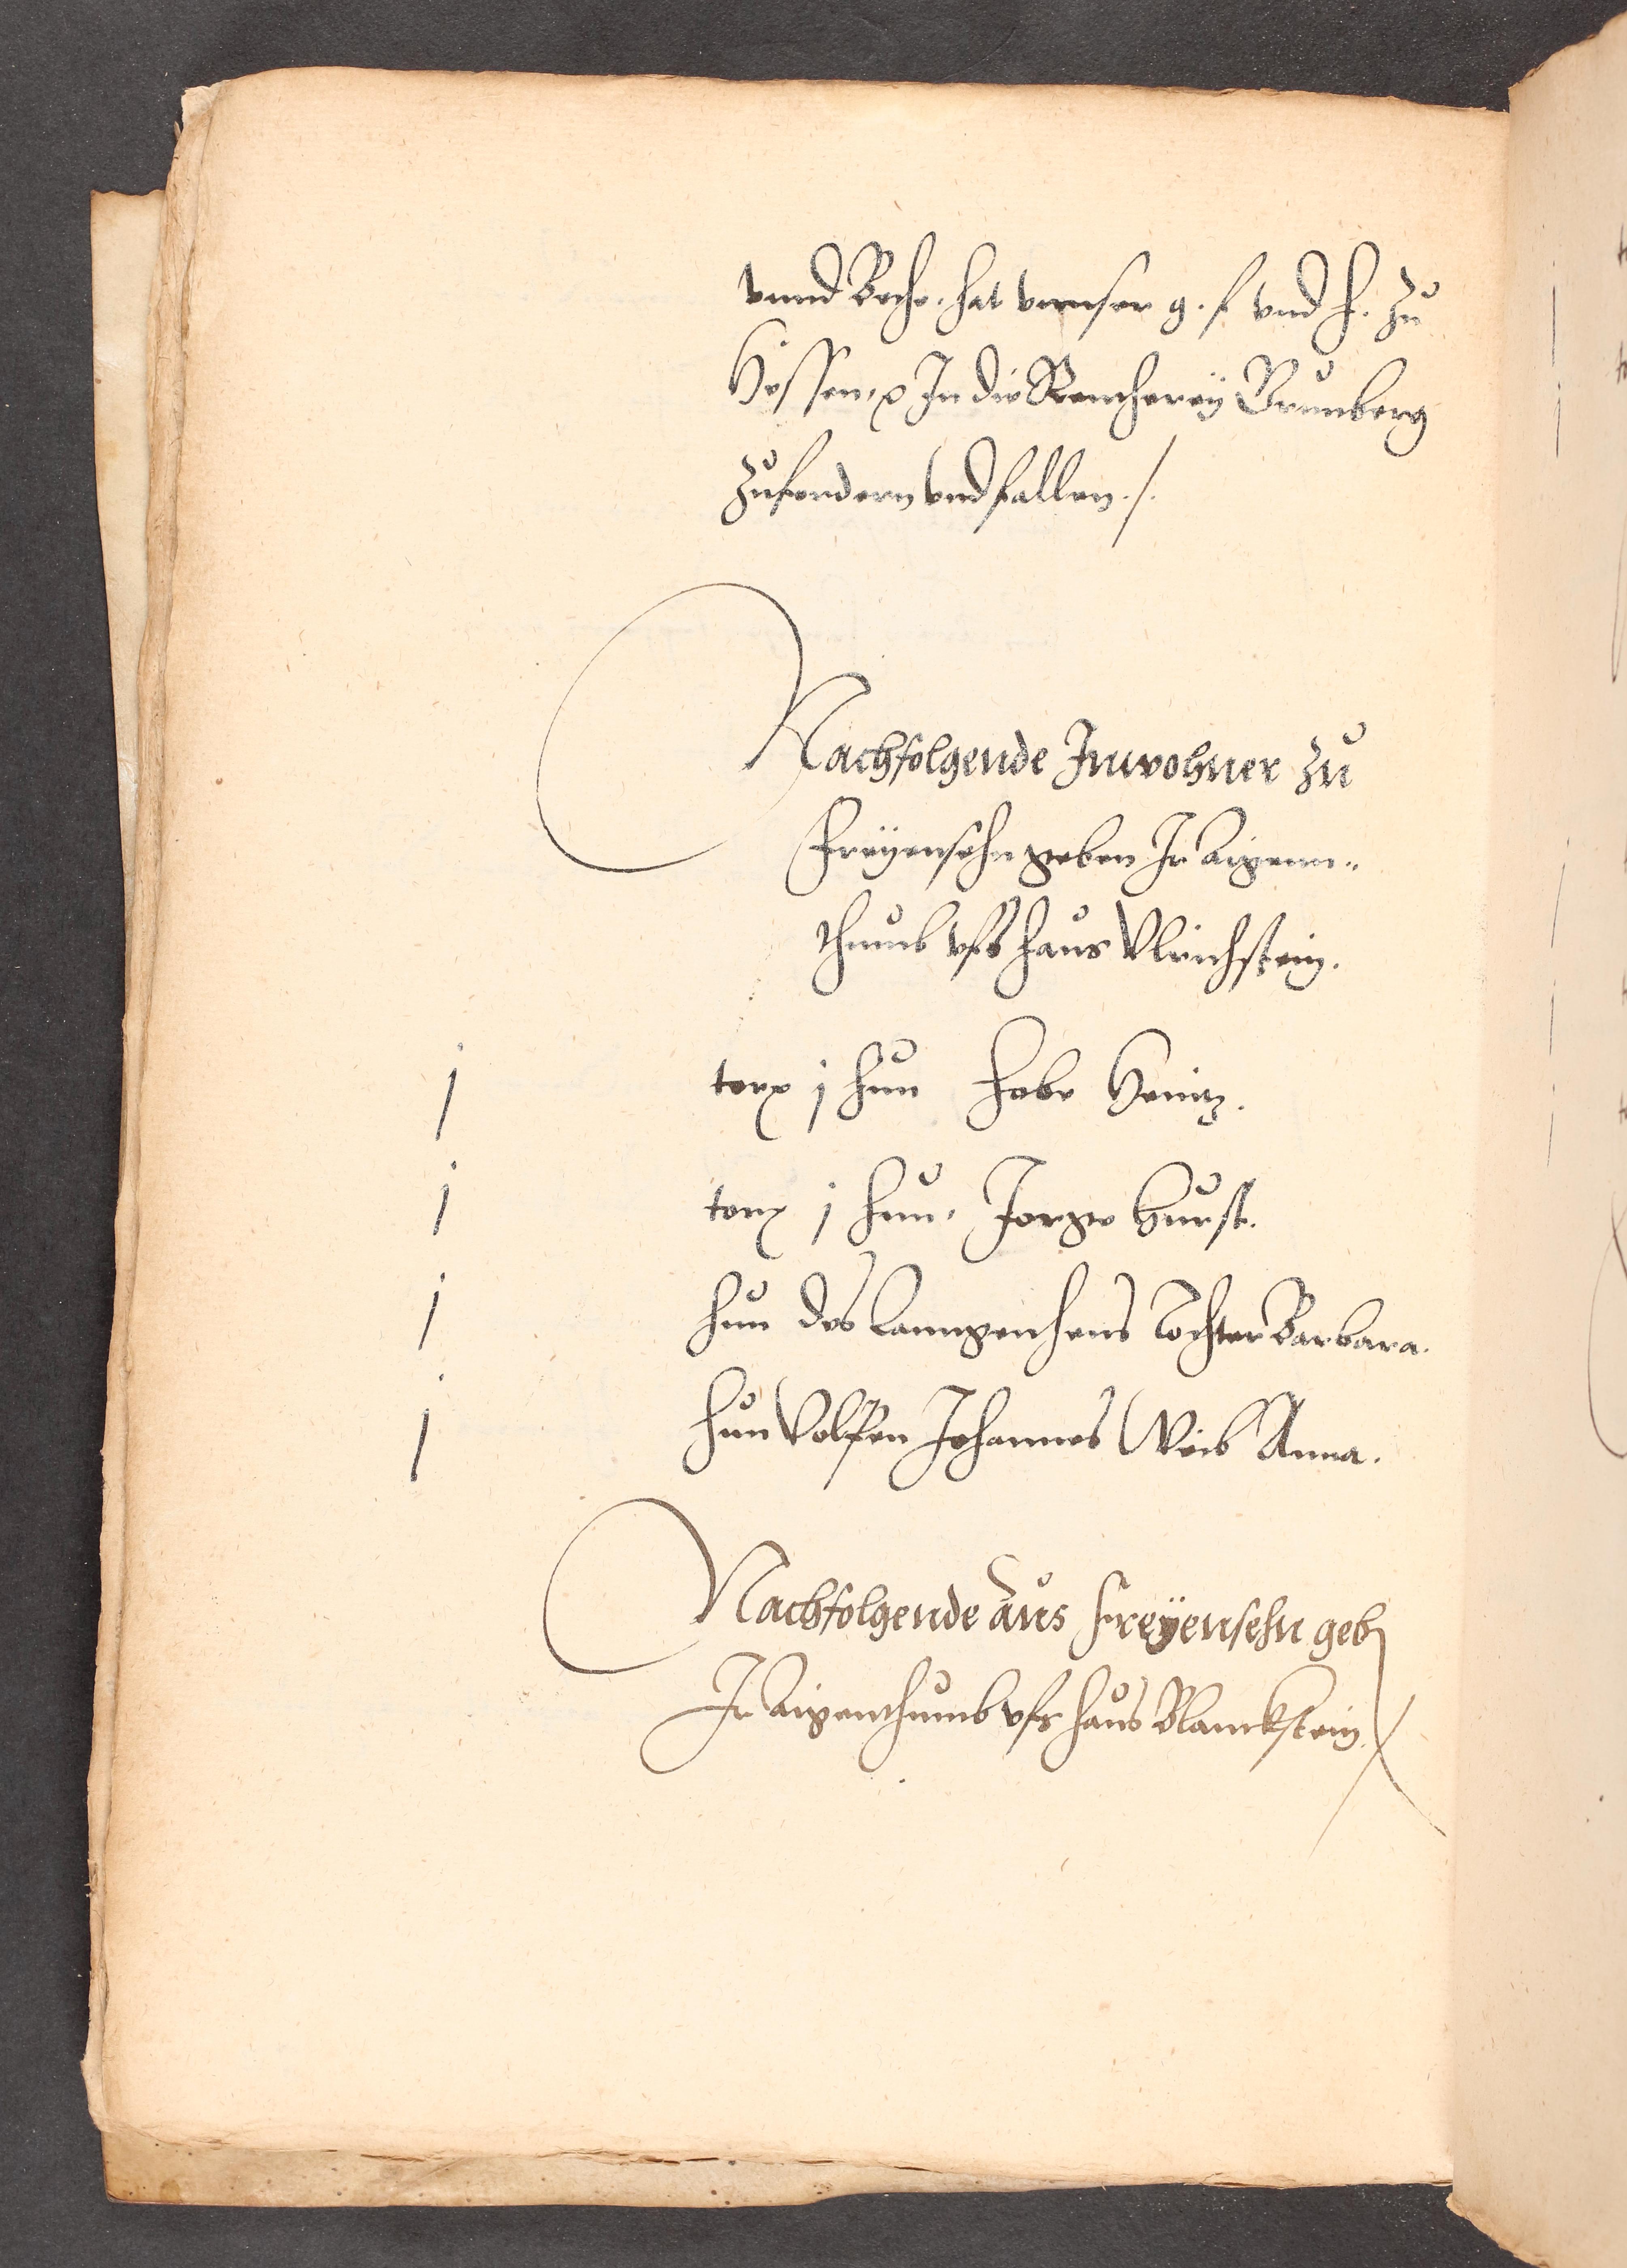 vnnd Bethe. hat vnnser g. f. vnd h. zu
Hessen, &c In die Renthereÿ Grunberg
zufordern vnd fallen ./.
Nachfolgende Inwohner zu
Freÿensehn geben Ir Aigenn¬
thumb vfs haus Vlrichstein.
j torx j hun Hobe Heintz.
j torx j hun, Jorge Hurst.
j hun des Langenhens Dochter Barbara.
j hun Volffen Johannes Weib Anna.
Nachfolgende aus Freÿensehn geb
Ir Aigenthumb vfs haus Blanckstein